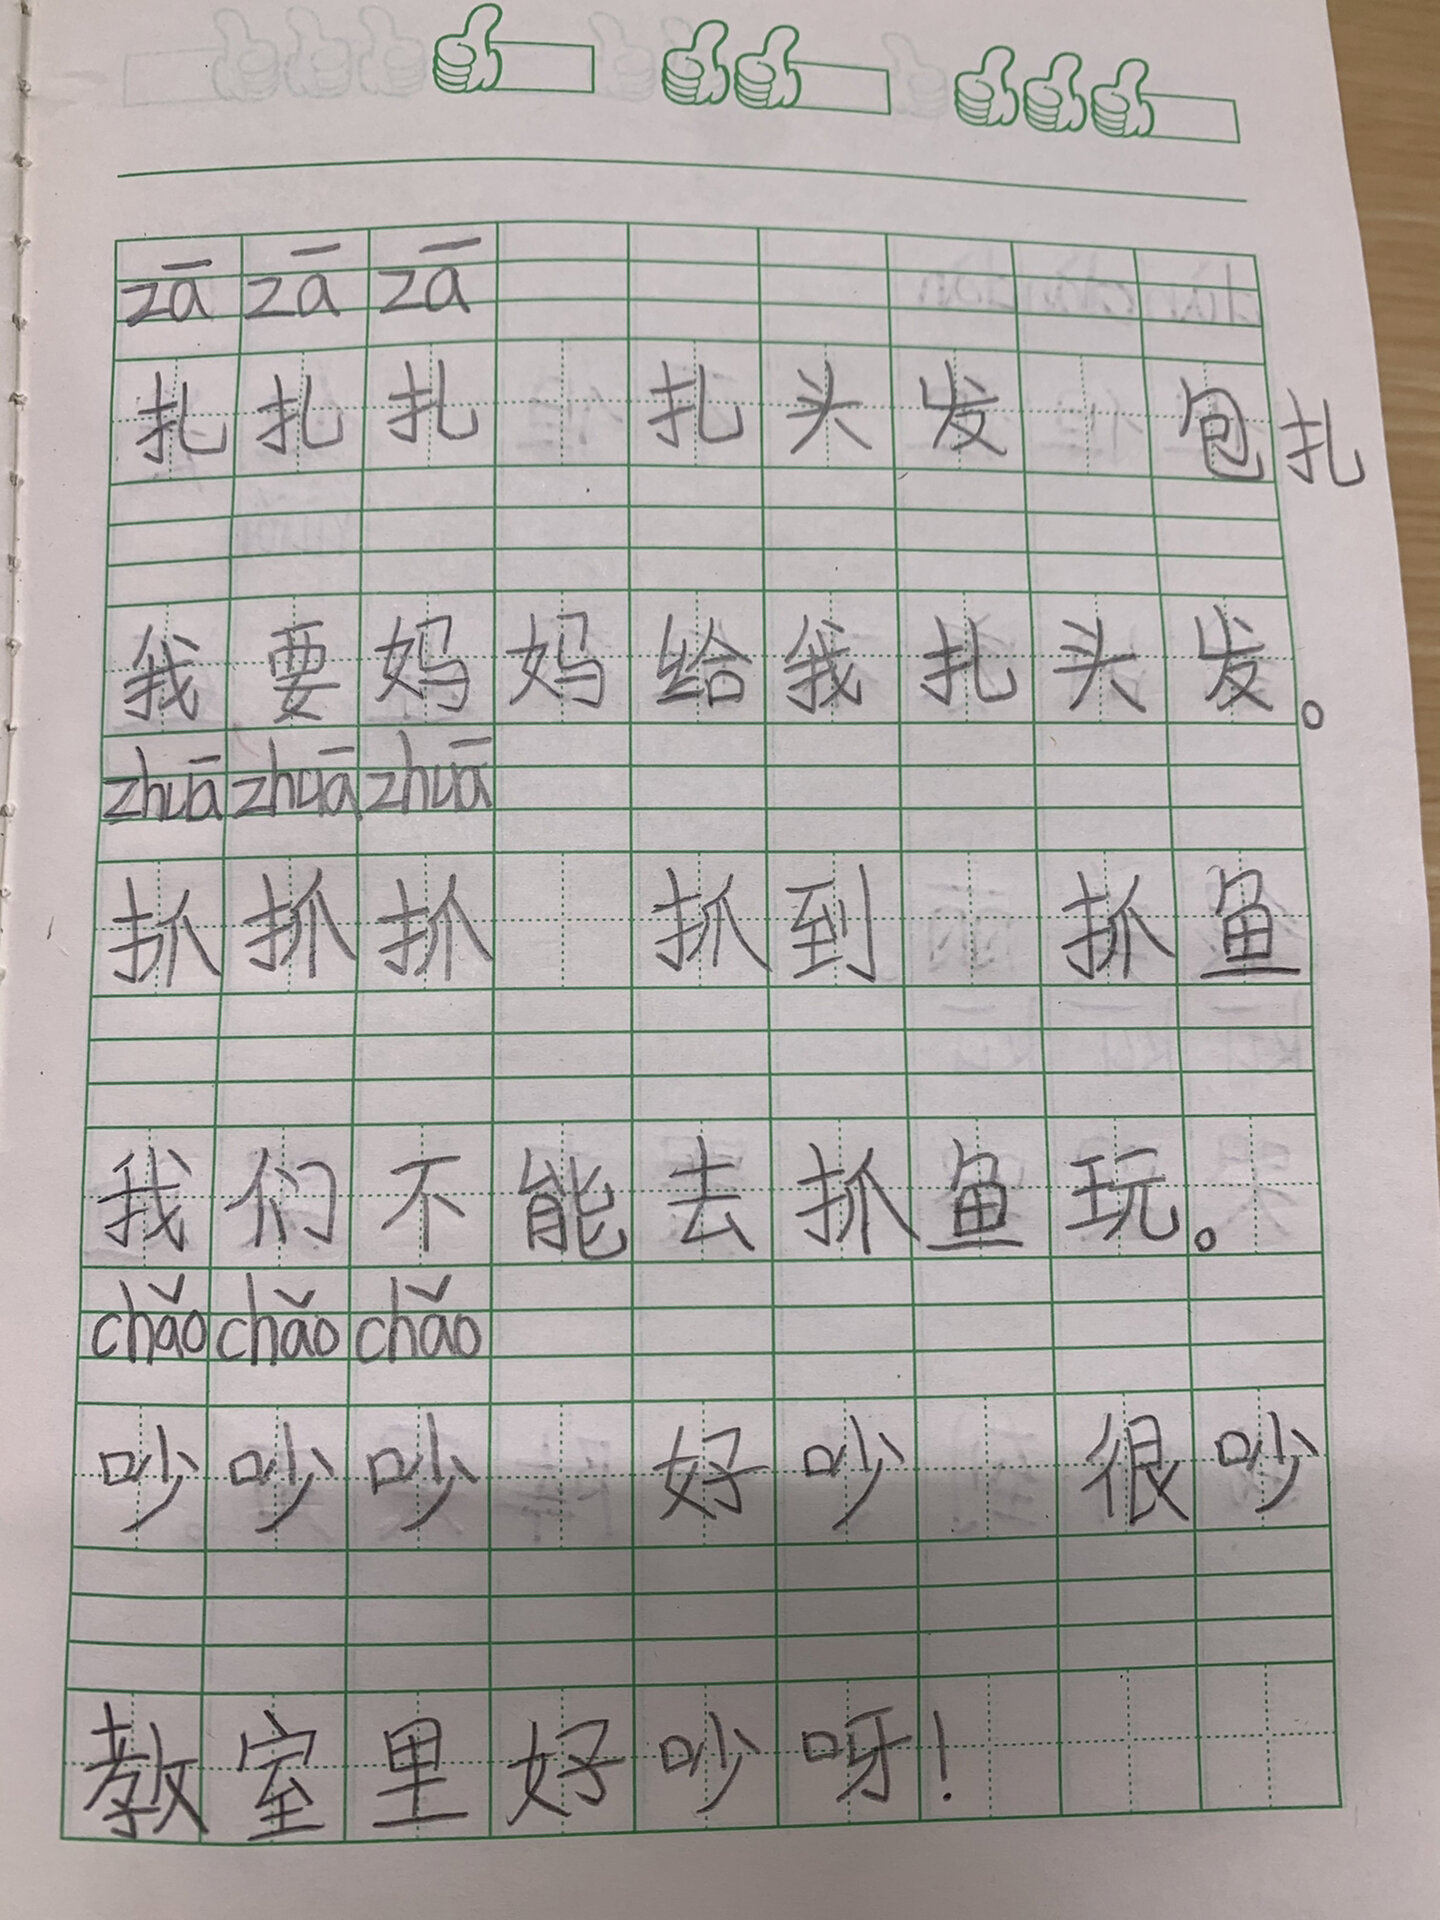 zā zā zā
扎扎扎 扎头发 包扎
我要妈妈给我扎头发。
zhuā zhuā zhuā
抓抓抓 抓到 抓鱼
我们不能去抓鱼玩。
chǎo chǎo chǎo
吵吵吵 好吵 很吵
教室里好吵呀!